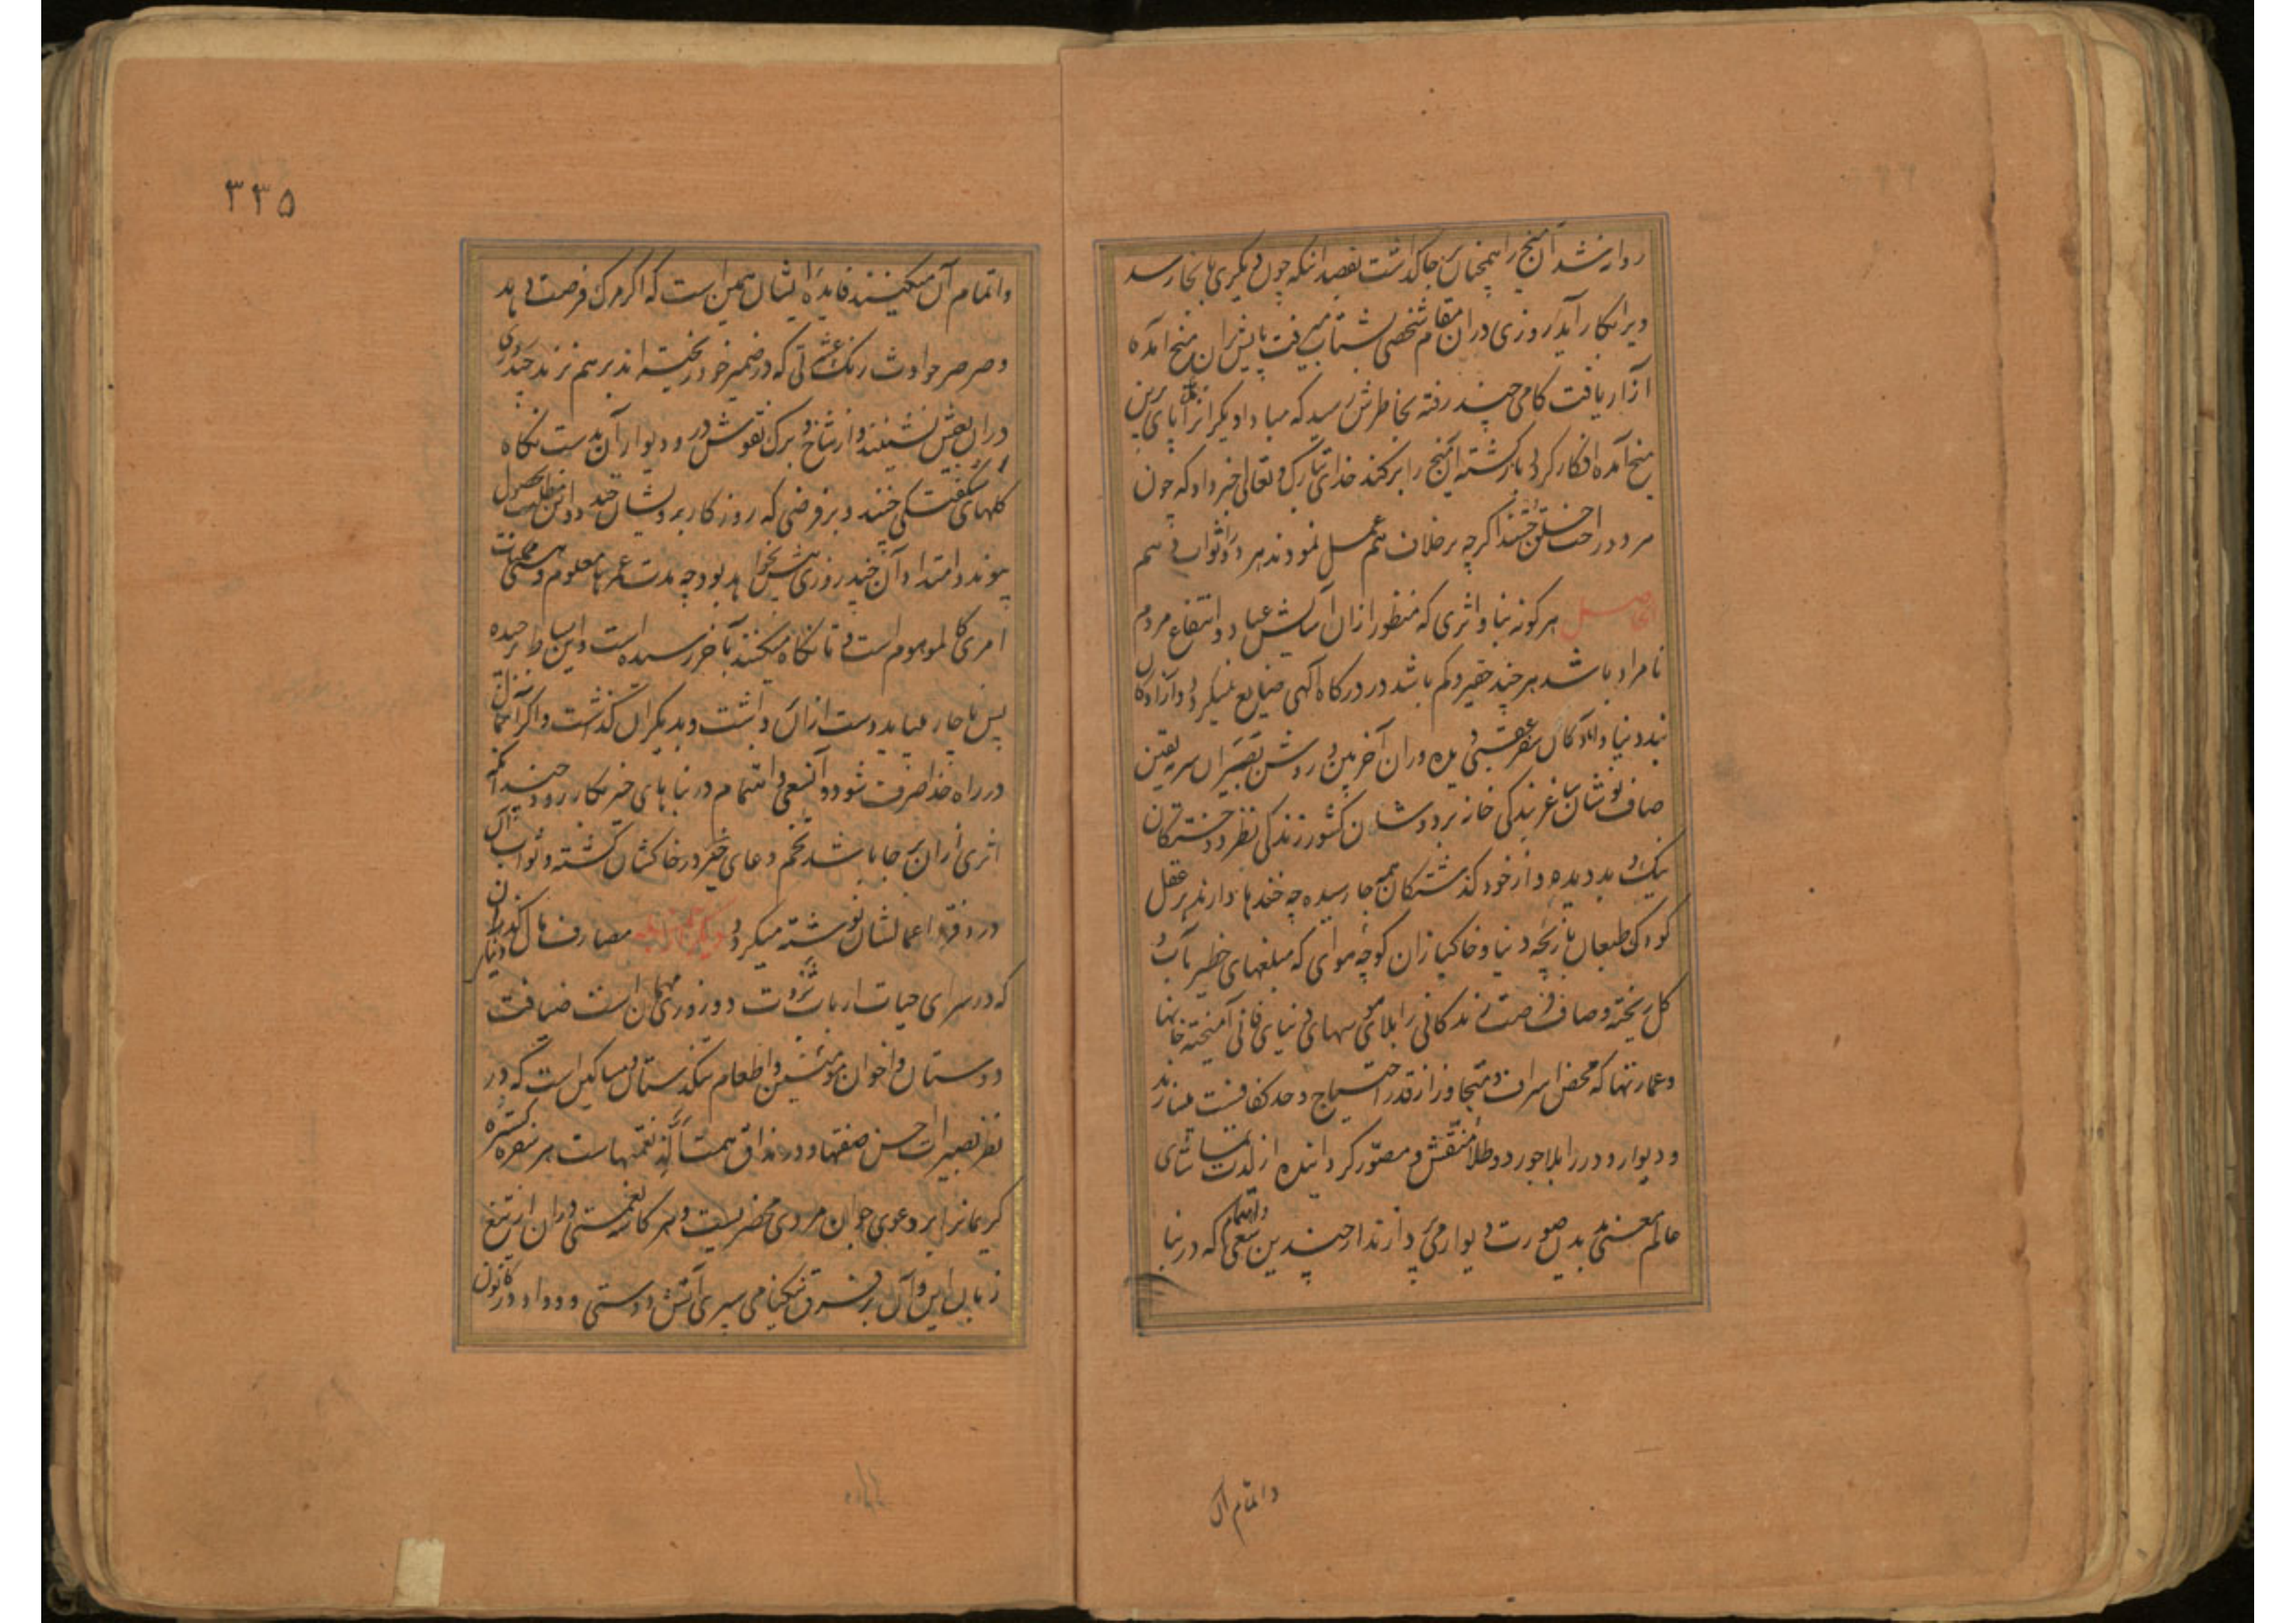 روانه شد آن میخ را همچنان بر جا گذاشت بقصد انکه چون دیکری بانجا رسد
ویرا بکار آید روزی دران مقام شخصی بشتاب میرفت پایش ازان میخ آمده
آزار یافت کامی چند رفته بخاطرش رسید که مبادا دیکرانرا پای برین
میخ آمده افکار کردد بازکشته آن میخ را برکند خدای تبارک و تعالی خبر داد که چون
هر دو راحت خلق جستند اکرچه بر خلاف هم عمل نمودند هر دو در ثواب هم
الحاصل هر کونه بنا و اثری که منظور ازان آسایش عباد و انتفاع مردم
نامراد باشد هر چند حقیر و کم باشد در درکاه الهی ضایع نمیکردد و آزادکان
بند دنیا و آمادکان سفر عقبی دیده وران آخر بین و روشن بصیران سر یقین
صاف نوشان ساغر بندکی خانه بردوشان کشور زندکی نظر دوختکان
نیک و بد دیده و از خود کذشتکان بهمه جا رسیده چه خنده ها دارند بر عقل
کودک طبعان بازیچه دنیا و خاکبازان کوچه هوای که مبلغهای خطیر بآب و
کل ریخته و صاف فرصت زندکانی را بلای هوسهای دنیای فانی آمیخته خانها
و عمارتها که محض اسراف و متجاوز از قدر احتیاج و حد کفافست میسازند
و دیوار و در را بلاجورد و طلا منقش و مصور کردانیده از لذت تماشای
عالم معنی بدین صورت دیوار می پردازند از چندین سعی و اهتمام که در بنا
و اتمام آن
۳۳۵
و اتمام آن میکنند فایده ایشان همین است که اکر مرک فرصت دهد
و صرصر حوادث رنک عشرتی که در ضمیر خود ریخته اند بر هم نزند چند روزی
دران بعیش نشینند و از شاخ و برک نقوش در و دیوار آن بدست نکاه
کلهای شکفتکی چینند و بر فرضی که روزکار بر دوشان خندد و این مطلب بحصول
پیوندد امتداد آن چند روزی بیش نخواهد بود چه مدت عمرها معلوم و هستی
امری کالموهوم است و تا نکاه میکنند بآخر رسیده است و این بساط برچیده
پس ناچار میباید دست ازان داشت و بدیکران کذشت و اکر آنمال
در راه خدا صرف شود و آن سعی و اهتمام در بناهای خیر بکار رود چندانکه
اثری ازان بر جا باشد تخم دعای خیر در خاکشان کشته و ثواب آن
در دفتر اعمالشان نوشته میکردد مصارف مال
که در سرای حیات ارباب ثروت دو روزی مهمان است ضیافت
دوستان و اخوان مومنین و اطعام تنکدستان و مساکین است که در
نظر بصیرت احسن صفتها و در مذاق همت الذ نعمتهاست هر سفره کسترده
کریمانرا بر دعوی جوان مردی محضریست و هر کاسه نعمتی دران از تیغ
زبان این و آن بر فرق نیکنامی سپری آتش دوستی و وداد در کانون